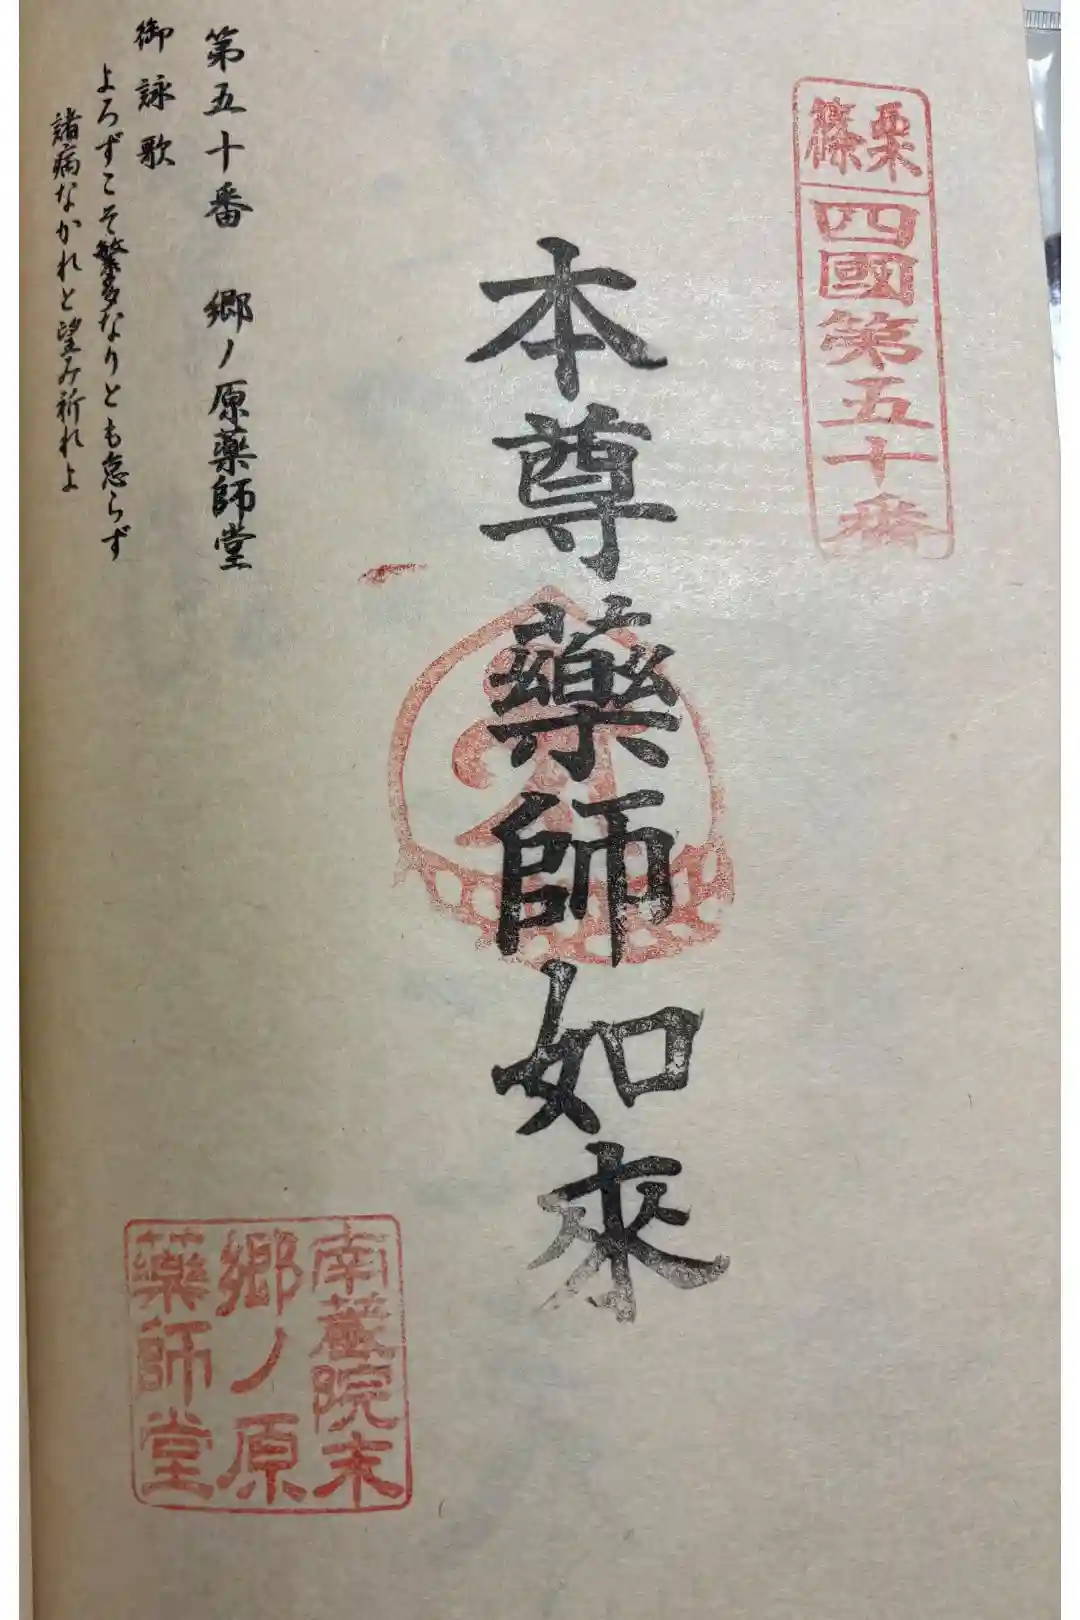 篠栗
四國第五十番
本尊藥師如来
第五十番 郷ノ原藥師堂
御詠歌
よろずこそ繁多なりとも怠らず
諸病なかれと望み祈れよ
南蔵院末
郷ノ原
藥師堂